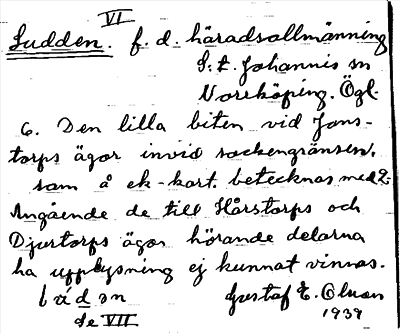 VI
Sudden. f. d. häradsallmänning
S:t Johannis sn
Norrköping. Ögl.
6. Den lilla biten vid Jons-
torps ägor invid sockengränsen.
som å ek-kart. betecknas med 2.
Angående de till Hårstorps och
Djurtorps ägor hörande delarna
ha upplysning ej kunnat vinnas.
Gustaf E. Olson
de VII
1939